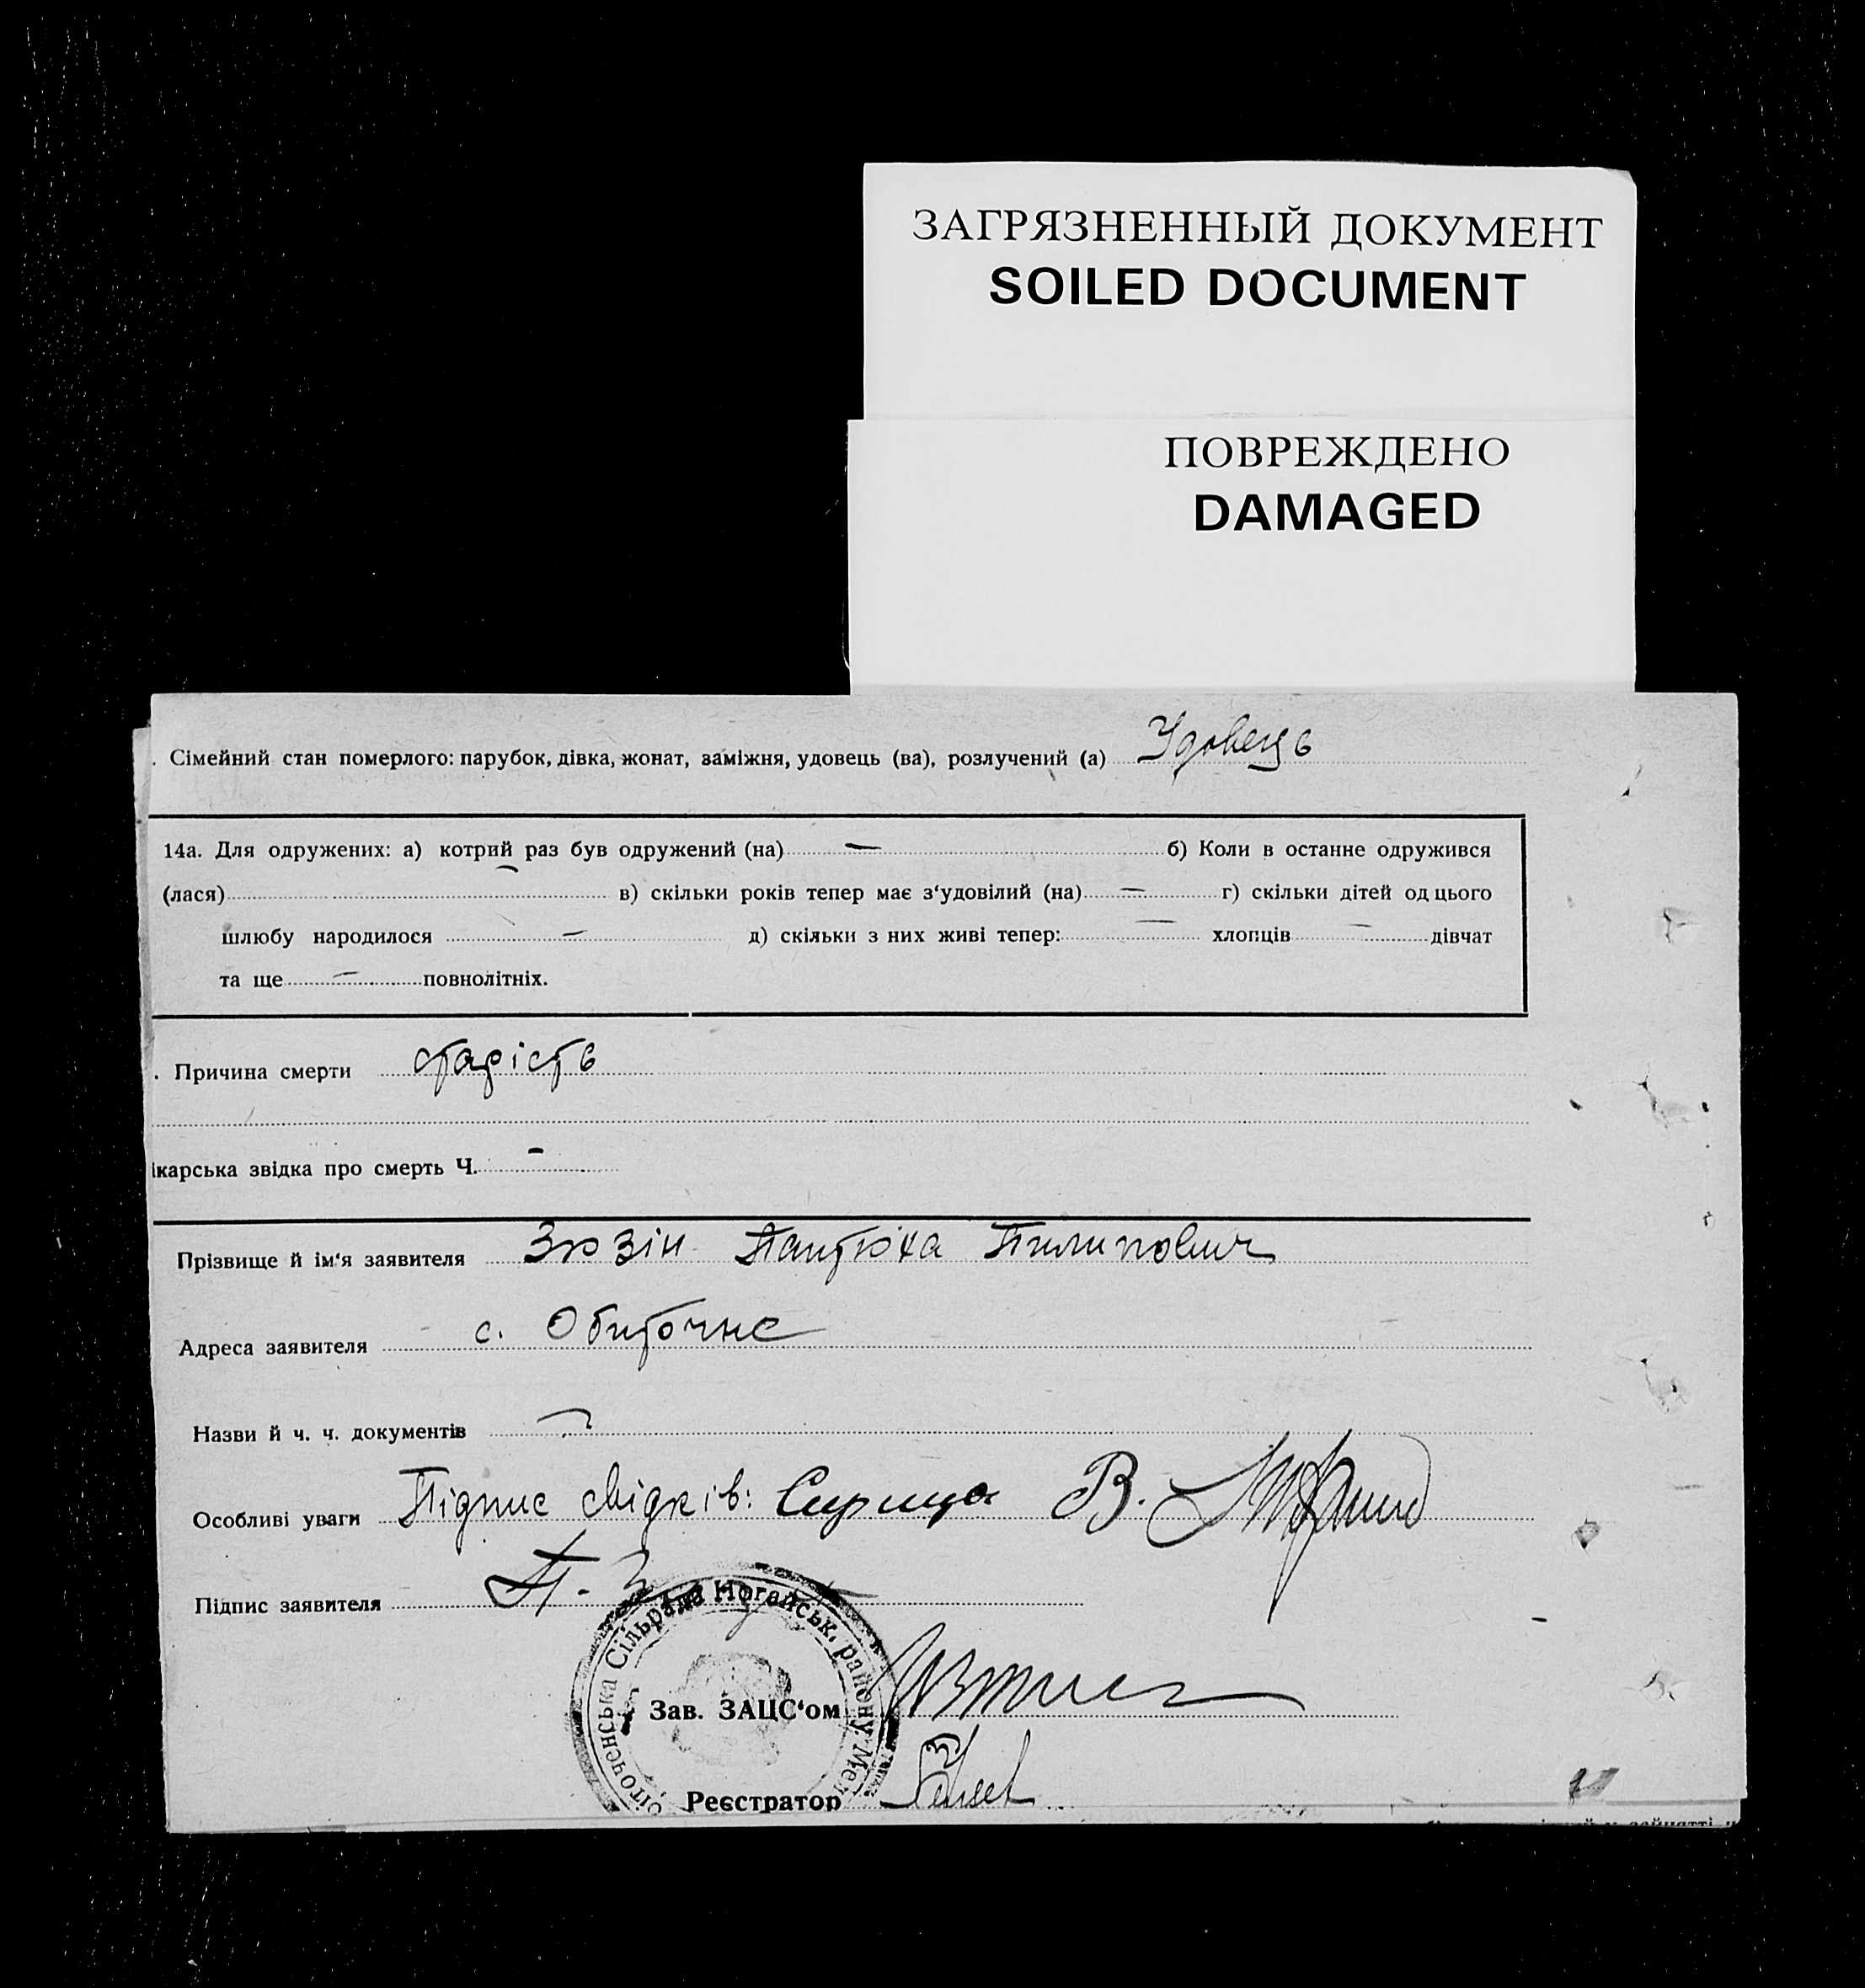 ЗАГРЯЗНЕННЫЙ ДОКУМЕНТ
SOILED DOCUMENT
ПОВРЕЖДЕНО
DAMAGED
. Сімейний стан померлого: парубок, дівка, жонат, заміжня, удовець (ва), розлучений (а) Удовець
14а. Для одружених: а) котрий раз був одружений (на) — б) Коли в останне одружився
(лася) — в) скільки років тепер має з‘удовілий (на) — г) скільки дітей од цього
шлюбу народилося — д) скільки з них живі тепер: — хлопців — дівчат
та ще — повнолітніх.
. Причина смерти старість
ікарська звідка про смерть Ч. -
Прізвище й ім‘я заявителя Зюзін Пантюха Пилипович
Адреса заявителя с. Обиточне
Назви й ч. ч. документів
Особливі уваги Підпис свідків: В.
Підпис заявителя П. З
Сільрада Ногайськ. району Мел
Зав. ЗАЦС‘ом
Реєстратор